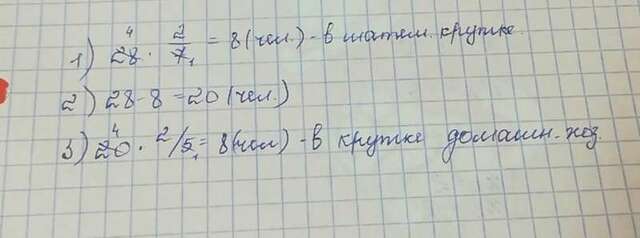 1) 28⁴ · 2/7₁ = 8 (чел.) - в матем. кружке.
2) 28 - 8 = 20 (чел.)
3) 20⁴ · 2/5₁ = 8 (чел) - в кружке домашн. хоз.